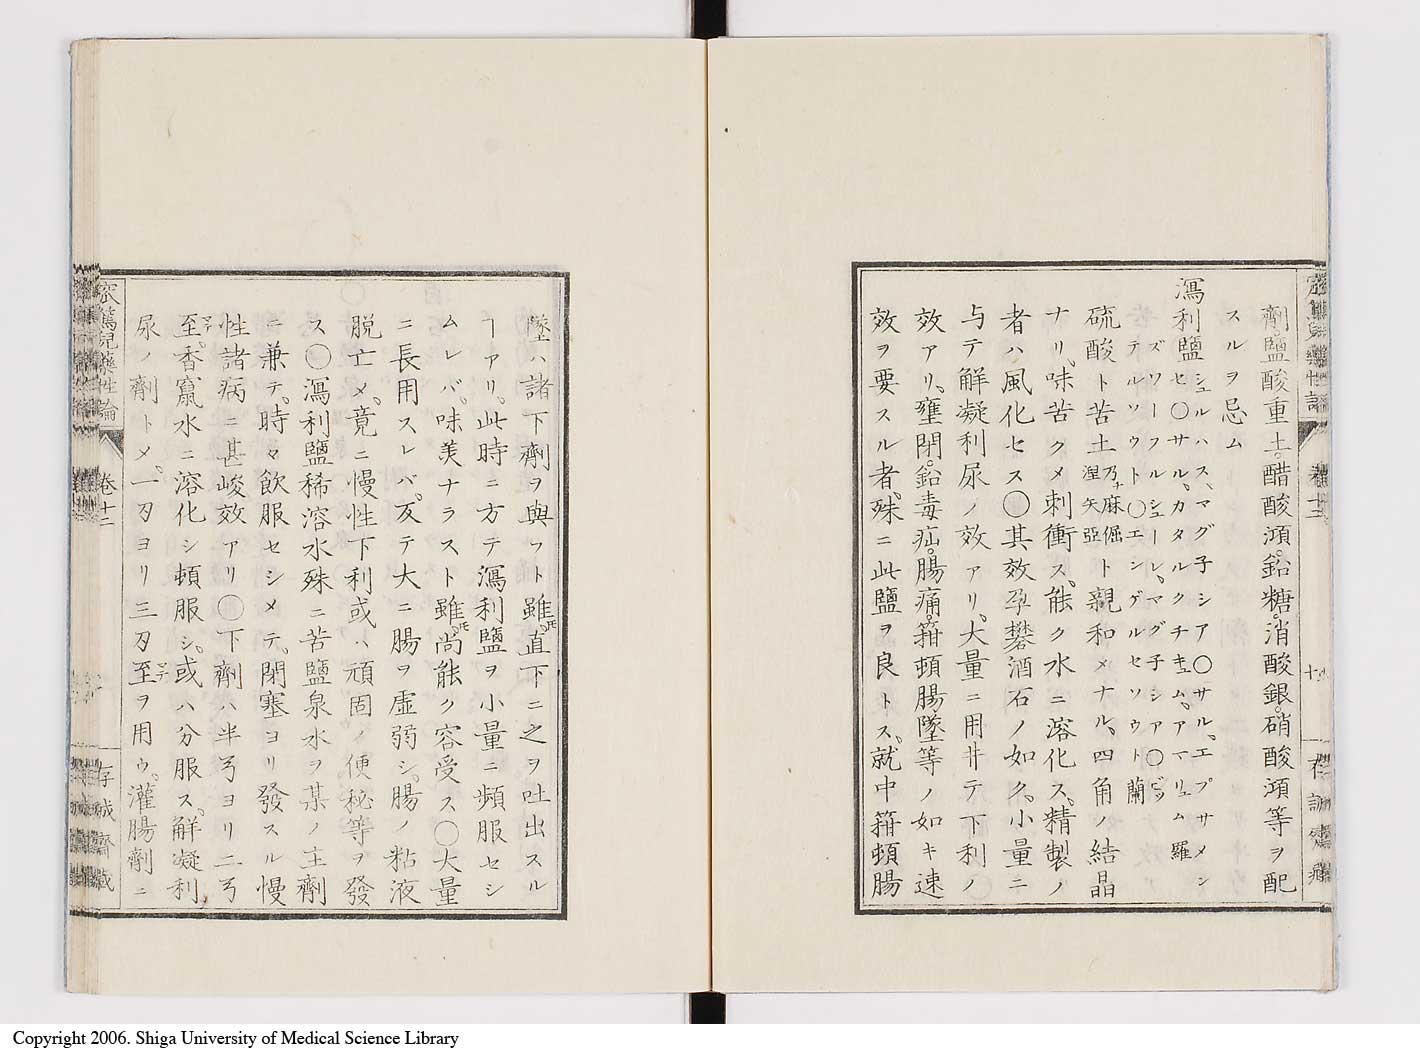 劑。鹽酸重土。醋酸澒。鉛糖。消酸銀。硝酸澒等ヲ配
スルヲ忌ム
瀉利鹽 シュルハス、マグ子シア〇サル、エプサメン
セ〇サル、カタルクチキュム、アマリュム 羅
ズワーフルシューレ、マグ子シア〇ビッ
テルソウト〇エングルセソウト 蘭
硫酸ト苦土 乃チ麻倔涅矢亞 ト親和メナル、四角ノ結晶
ナリ、味苦クメ刺衝ス、能ク水ニ溶化ス。精製ノ
者ハ風化セス〇其效孕礬酒石ノ如ク、小量ニ
与テ解凝利尿ノ效アリ、大量ニ用井テ下利ノ
效アリ、壅閉。鉛毒疝。腸痛。箝頓腸墜等ノ如キ速
效ヲ要スル者、殊ニ此鹽ヲ良トス。就中箝頓腸
墜ハ諸下劑ヲ與フト雖モ、直下ニ之ヲ吐出スル
ーアリ。此時ニ方テ瀉利鹽ヲ小量ニ頻服セシ
ムレバ、味美ナラスト雖モ、尚能ク容受ス〇大量
ニ長用スレバ、反テ大ニ腸ヲ虚弱シ、腸ノ粘液
脱亡メ、竟ニ慢性下利或ハ頑固ノ便秘等ヲ發
ス〇瀉利鹽稀溶水殊ニ苦鹽泉水ヲ某ノ主劑
ニ兼テ、時々飲服セシメテ、閉塞ヨリ發スル慢
性諸病ニ甚峻效アリ〇下劑ハ半弓ヨリ二弓
至マテ。香竄水ニ溶化シ頓服シ、或ハ分服ス。解凝利
尿ノ劑トメ、一刃ヨリ三刃至マテヲ用ウ。灌腸劑ニ
窊篤兒藥性論
卷十二
存誠齋藏
Copyright 2006. Shiga University of Medical Science Library